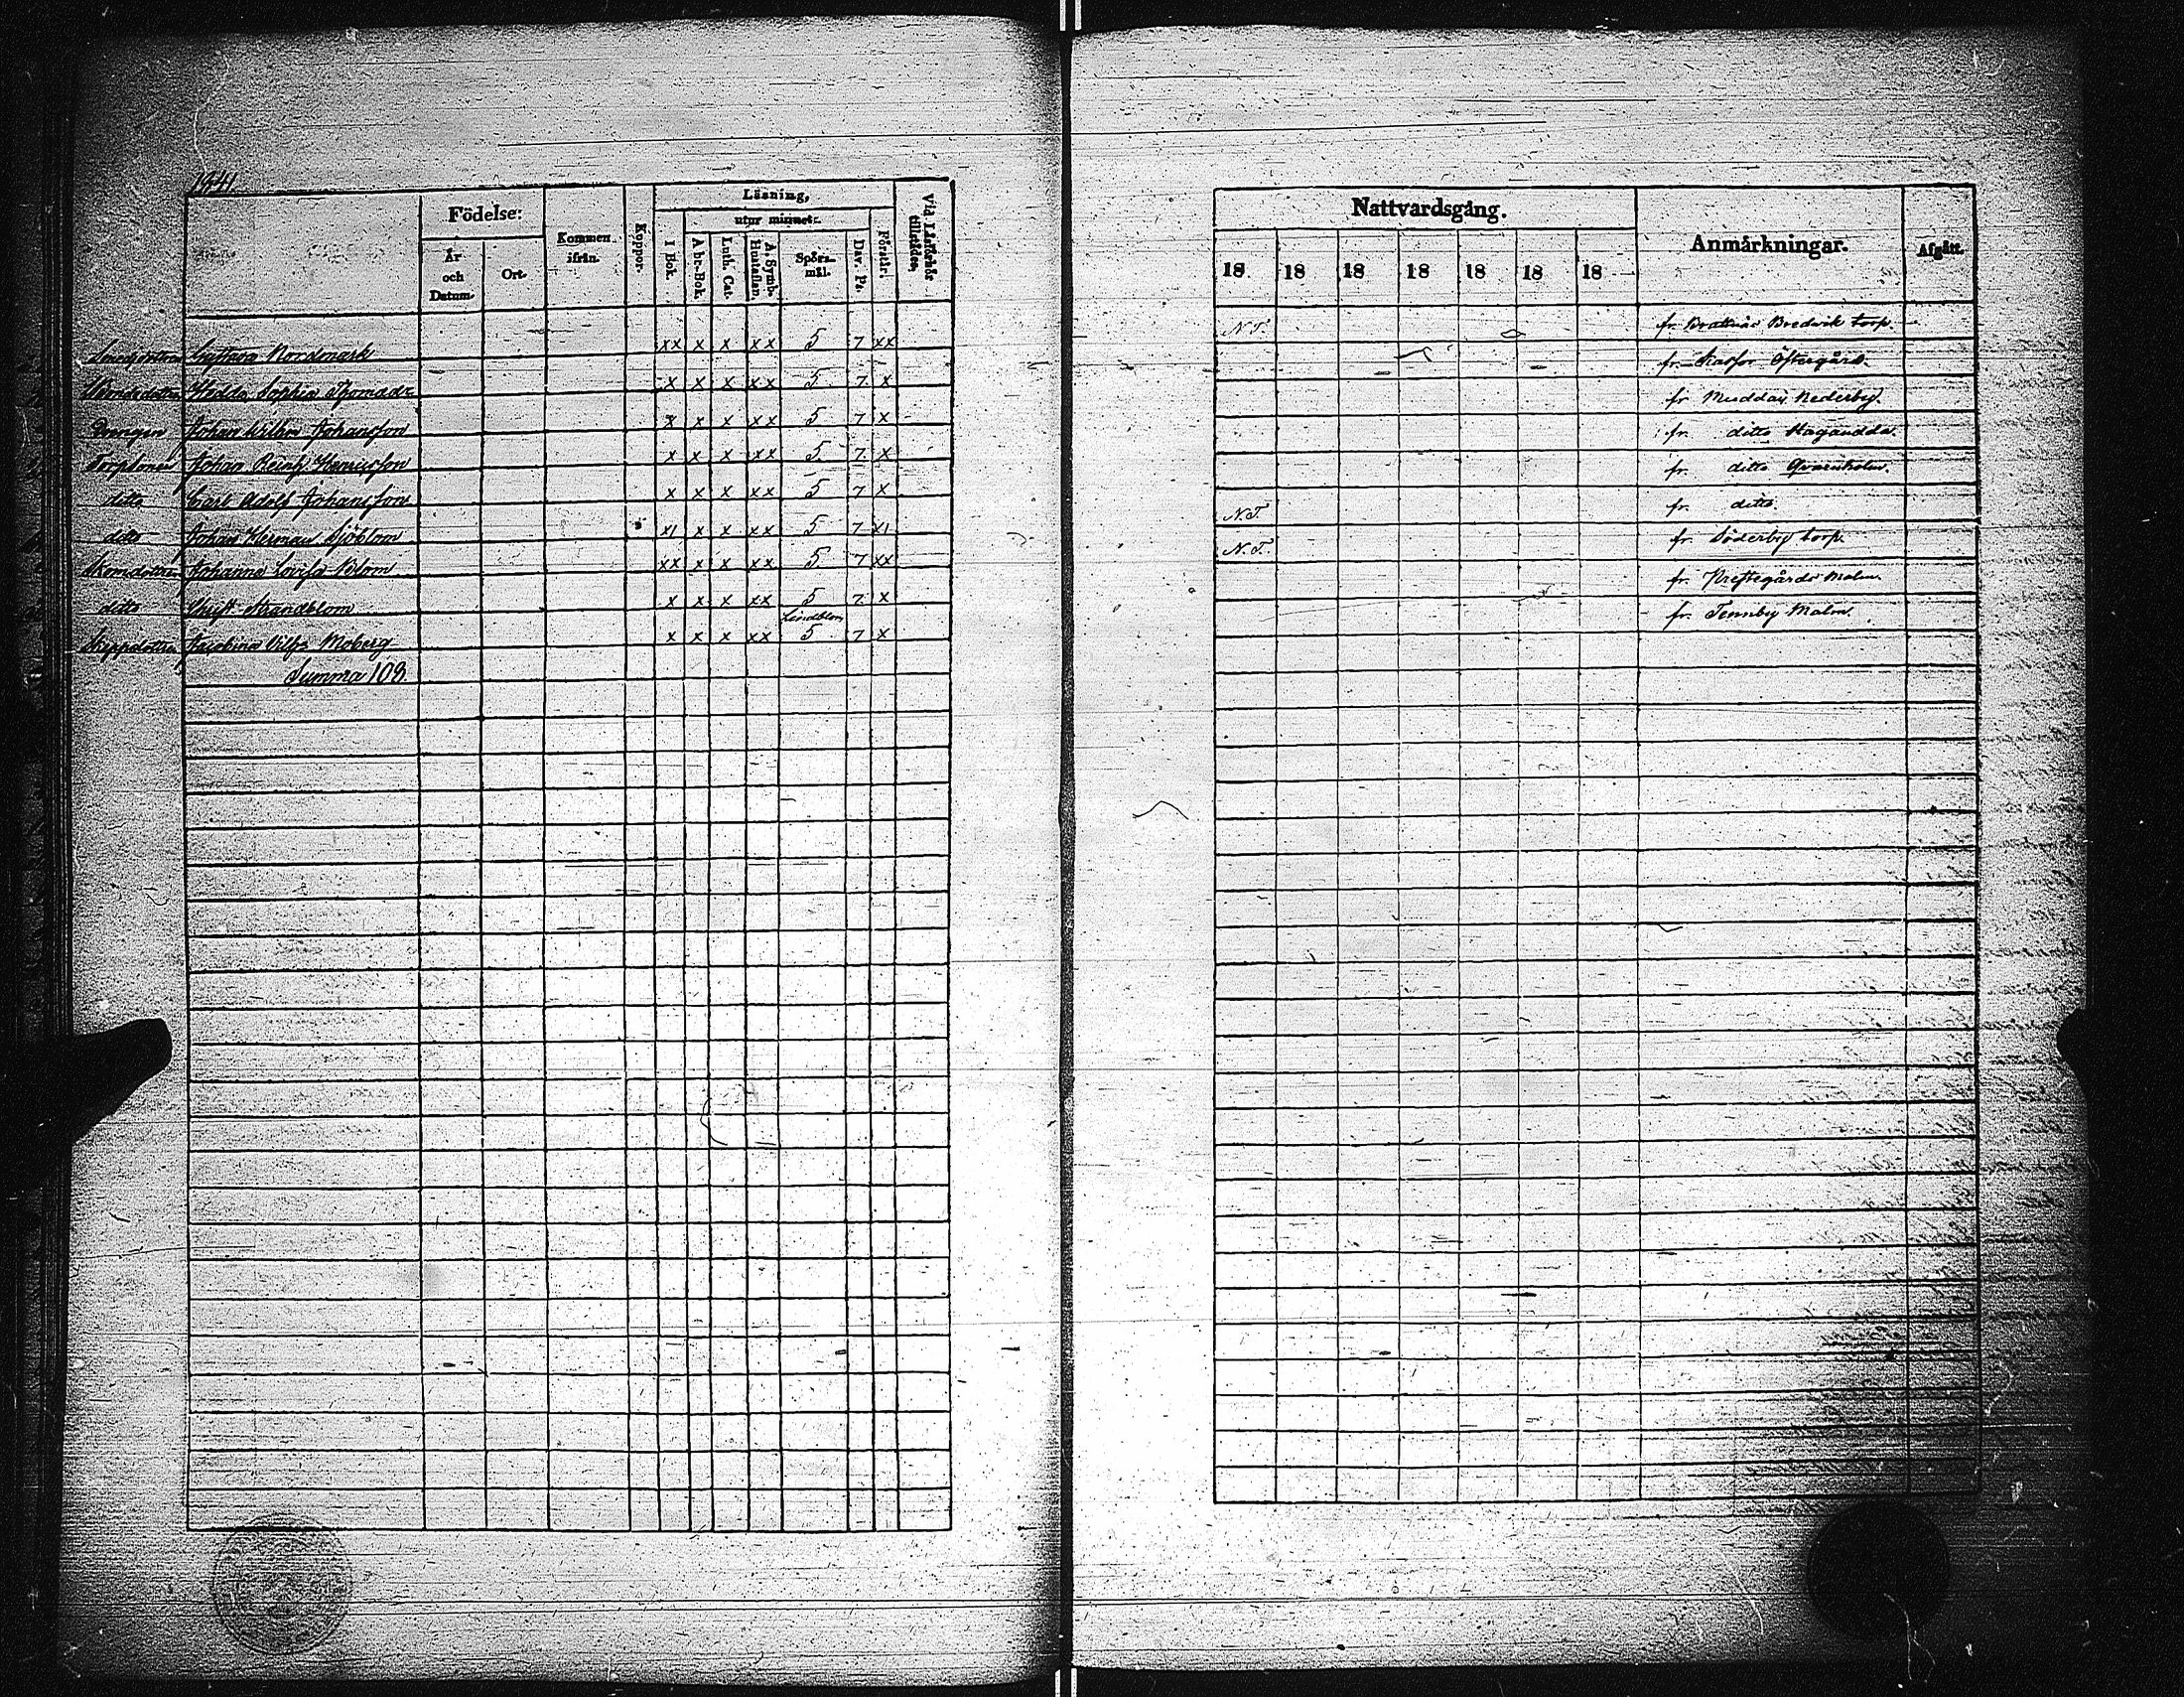 1841
Födelse:
År och Datum.
Ort.
Kommen ifrån.
Koppor.
Läsning,
utur minnet:
I Bok.
Abc-Bok.
Luth. Cat.
A. Symb. Hustaflan.
Spörsmål.
Dav. Ps.
Förstår.
Vid Läsförhör tillstädes.
Nattvardsgång.
18 18 18 18 18 18 18
Anmärkningar.
Afgått.
Gustava Nordmark xx x x xx 5 7 xx N.T. fr. Brattnäs Bredvik torp.
Hedda Sophia Thomadr x x x xx 5 7 x fr. Öftergård
Drengen Johan Wilhm Johansson x x x xx 5 7 x fr. Muddais Nederby.
Torpsonen Johan Reinh. Henricsson x x x xx 5 7 x fr. ditto Hagaudda.
ditto Carl Adolf Johansson x x x xx 5 7 x fr. ditto Qvarnholm.
ditto Johan Herman Sjöblom x1 x x xx 5 7 x1 N.T. fr. ditto.
Johanna Lovisa xx x x xx 5 7 xx N.T. fr. Söderby torp.
ditto Strandblom x x x xx 5 7 x fr. Preftegårds Malm
Lindblom
Jacobina Moberg x x x xx 5 7 x fr. Tennby Malm.
Summa 108